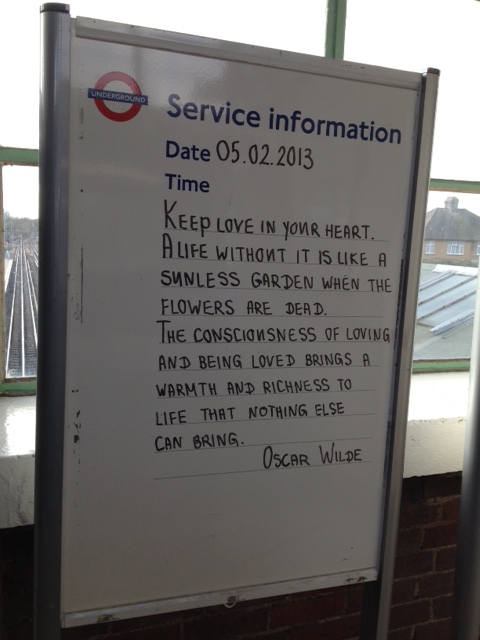 UNDERGROUND
Service information
Date 05.02.2013
Time
KEEP LOVE IN YOUR HEART.
A LIFE WITHOUT IT IS LIKE A
SUNLESS GARDEN WHEN THE
FLOWERS ARE DEAD.
THE CONSCIOUSNESS OF LOVING
AND BEING LOVED BRINGS A
WARMTH AND RICHNESS TO
LIFE THAT NOTHING ELSE
CAN BRING.
OSCAR WILDE